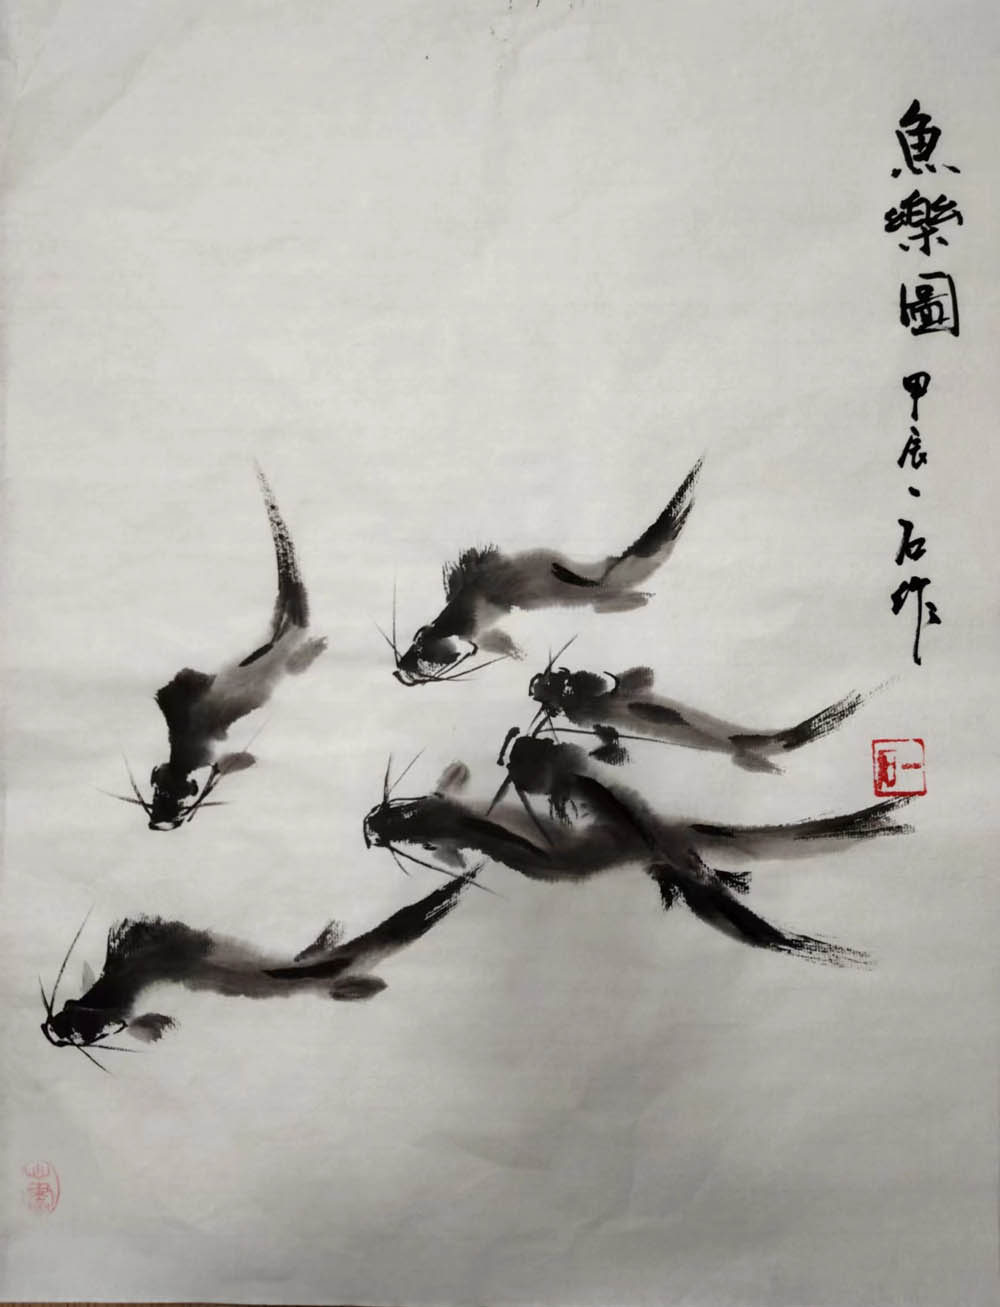 魚樂圖 甲辰一石作
一石